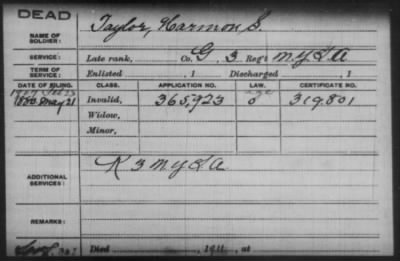 DEAD
NAME OF SOLDIER: Taylor, Harmon S.
SERVICE: Late rank, Co. G, 3 Reg't N.Y. L A
TERM OF SERVICE: Enlisted , 1 Discharged , 1
DATE OF FILING. CLASS. APPLICATION NO. LAW. CERTIFICATE NO.
1907 Feb 23 age
1880 May 21 Invalid, 365,923 o 319,801
Widow,
Minor,
ADDITIONAL SERVICES: K 3 N Y L A
REMARKS:
Died , 191 , at